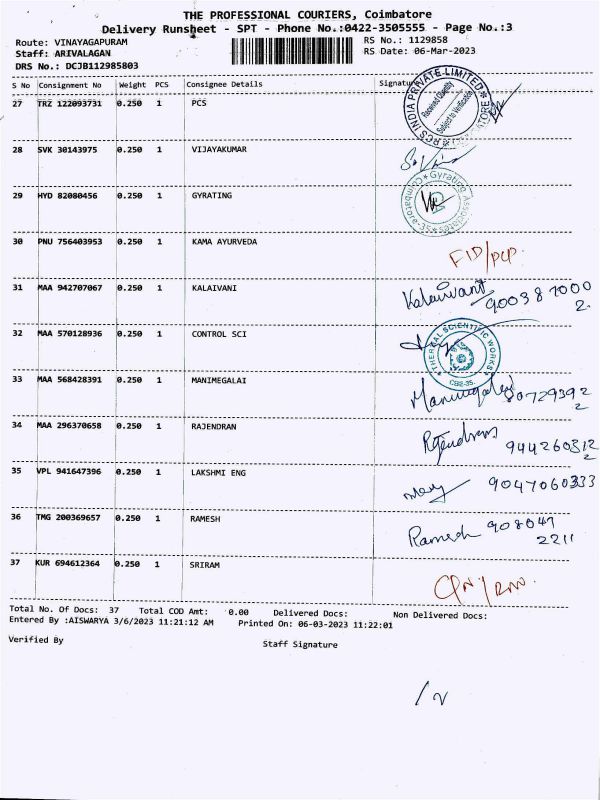 THE PROFESSIONAL COURIERS, Coimbatore
Delivery Runsheet - SPT - Phone No.:0422-3505555 - Page No.:3
Route: VINAYAGAPURAM RS No.: 1129858
Staff: ARIVALAGAN RS Date: 06-Mar-2023
DRS No.: DCJB112985803
S No Consignment No Weight PCS Consignee Details Signature
27 TRZ 122093731 0.250 1 PCS
RCS INDIA PRIVATE LIMITED
Received Quantity
Subject to Verification
28 SVK 30143975 0.250 1 VIJAYAKUMAR
29 HYD 82080456 0.250 1 GYRATING
Gyrating Associates
Coimbatore-35
30 PNU 756403953 0.250 1 KAMA AYURVEDA
31 MAA 942707067 0.250 1 KALAIVANI Kalaivani
32 MAA 570128936 0.250 1 CONTROL SCI
THERMAL SCIENTIFIC WORKS
CBE-35.
33 MAA 568428391 0.250 1 MANIMEGALAI Manimegalai
34 MAA 296370658 0.250 1 RAJENDRAN Rajendran 944260312
2
35 VPL 941647396 0.250 1 LAKSHMI ENG 9047060333
36 TMG 200369657 0.250 1 RAMESH Ramesh 908047
2211
37 KUR 694612364 0.250 1 SRIRAM
Total No. Of Docs: 37 Total COD Amt: 0.00 Delivered Docs: Non Delivered Docs:
Entered By :AISWARYA 3/6/2023 11:21:12 AM Printed On: 06-03-2023 11:22:01
Verified By Staff Signature